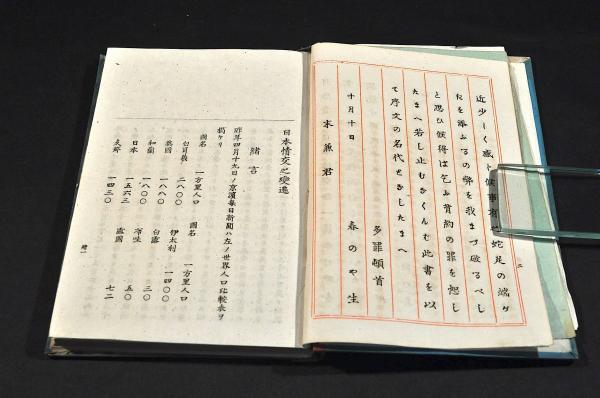 近少しく感
候事有
蛇足の端
を添ふるの弊を我まづ破るべし
と思ひ候得ば乞ふ背約の罪を恕し
たまへ若し止むなくんば此書を以
て序文の名代と
したまへ
多罪頓首
十月十日 春のや生
兼君
二
日本情交之變遷
緒言
昨年四月十九日ノ京濱毎日新聞ハ左ノ世界人口比較表ヲ
揭ケリ
國名 一方里人口 國名 一方里人口
白耳義 二八〇〇 伊太利 一四〇〇
英國
和蘭 一八〇〇 白露 三〇
日本 一五六三 布哇 五〇
支那 一四三〇 盧國 七二
緒一